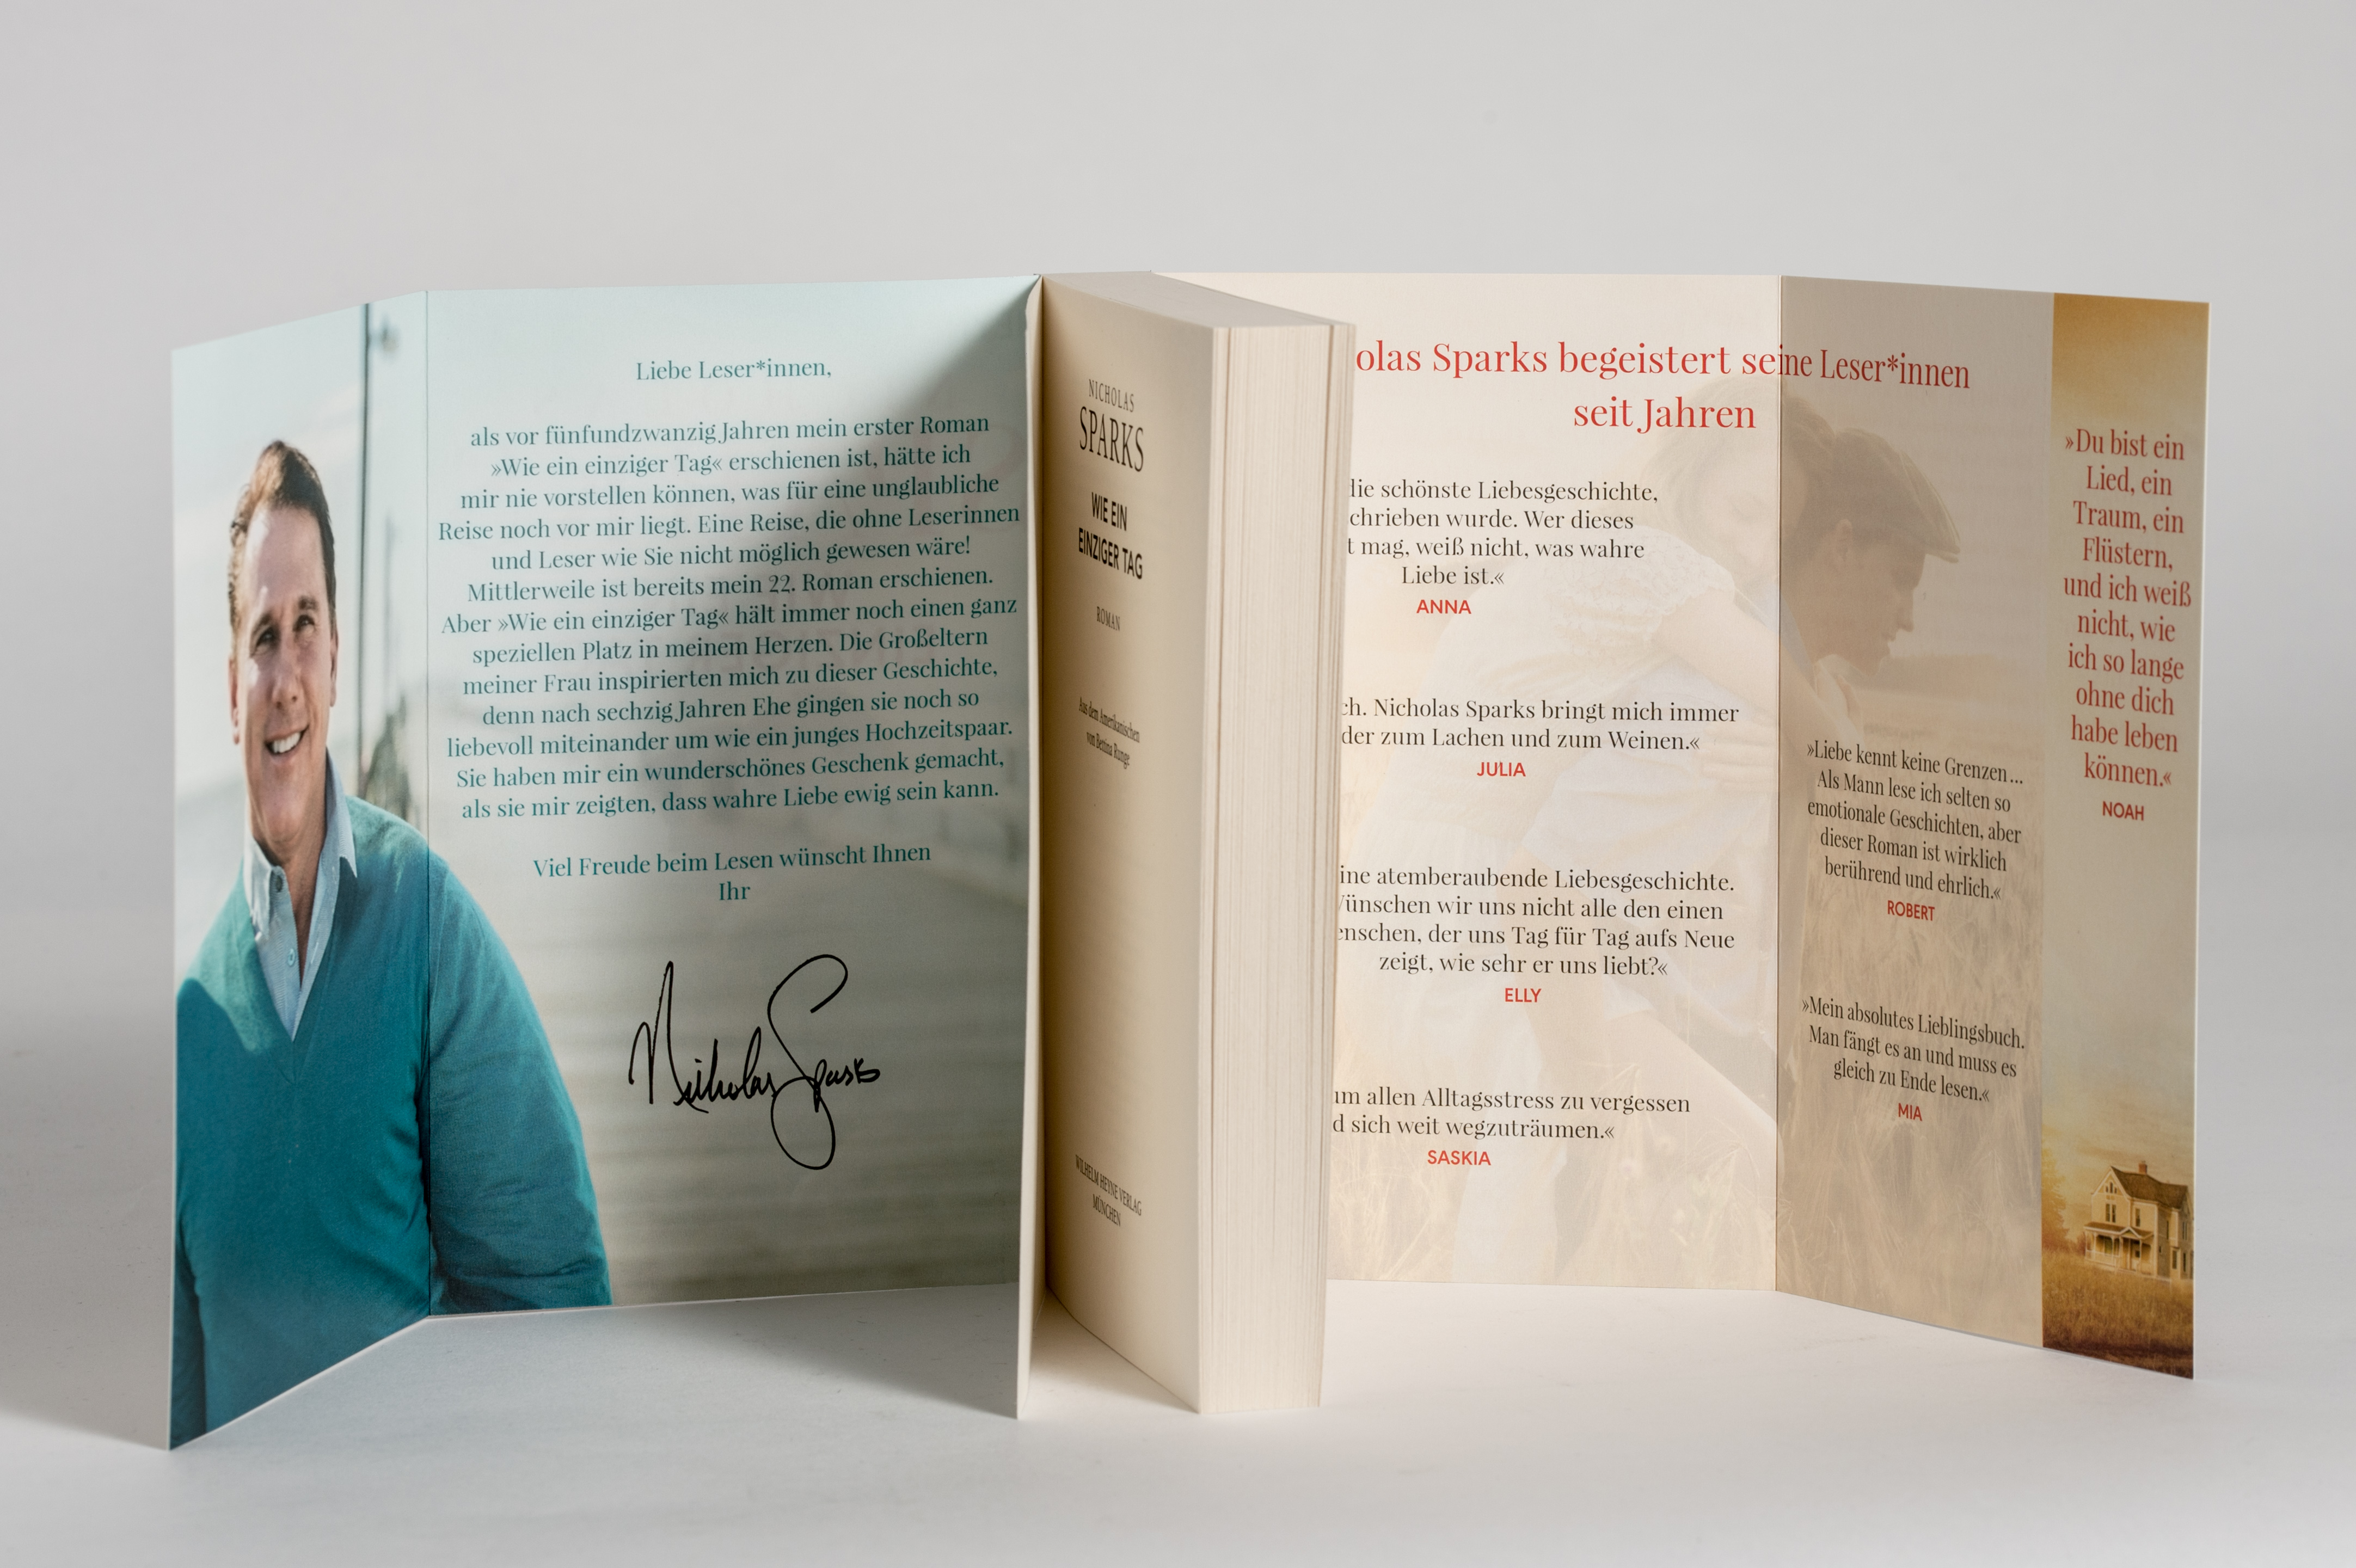 Liebe Leser*innen,
als vor fünfundzwanzig Jahren mein erster Roman
»Wie ein einziger Tag« erschienen ist, hätte ich
mir nie vorstellen können, was für eine unglaubliche
Reise noch vor mir liegt. Eine Reise, die ohne Leserinnen
und Leser wie Sie nicht möglich gewesen wäre!
Mittlerweile ist bereits mein 22. Roman erschienen.
Aber »Wie ein einziger Tag« hält immer noch einen ganz
speziellen Platz in meinem Herzen. Die Großeltern
meiner Frau inspirierten mich zu dieser Geschichte,
denn nach sechzig Jahren Ehe gingen sie noch so
liebevoll miteinander um wie ein junges Hochzeitspaar.
Sie haben mir ein wunderschönes Geschenk gemacht,
als sie mir zeigten, dass wahre Liebe ewig sein kann.
Viel Freude beim Lesen wünscht Ihnen
Ihr
Nicholas Sparks
NICHOLAS
SPARKS
WIE EIN
EINZIGER TAG
ROMAN
Aus dem Amerikanischen
von Bettina Runge
WILHELM HEYNE VERLAG
MÜNCHEN
olas Sparks begeistert seine Leser*innen
seit Jahren
die schönste Liebesgeschichte,
chrieben wurde. Wer dieses
t mag, weiß nicht, was wahre
Liebe ist.«
ANNA
ch. Nicholas Sparks bringt mich immer
der zum Lachen und zum Weinen.«
JULIA
ine atemberaubende Liebesgeschichte.
Wünschen wir uns nicht alle den einen
enschen, der uns Tag für Tag aufs Neue
zeigt, wie sehr er uns liebt?«
ELLY
um allen Alltagsstress zu vergessen
d sich weit wegzuträumen.«
SASKIA
»Liebe kennt keine Grenzen ...
Als Mann lese ich selten so
emotionale Geschichten, aber
dieser Roman ist wirklich
berührend und ehrlich.«
ROBERT
»Mein absolutes Lieblingsbuch.
Man fängt es an und muss es
gleich zu Ende lesen.«
MIA
»Du bist ein
Lied, ein
Traum, ein
Flüstern,
und ich weiß
nicht, wie
ich so lange
ohne dich
habe leben
können.«
NOAH